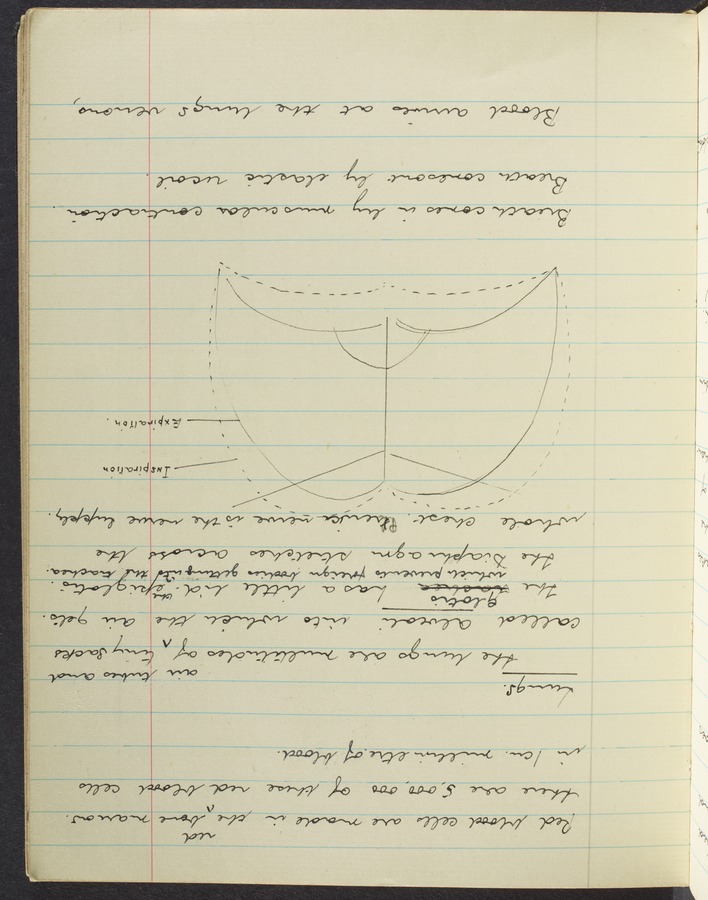 Red blood cells are made in the red bone marrow.
there are 5,000,000 of these red blood cells
in 1 cu. millimetre of blood.
Lungs.
the lungs are multitudes of air tubes and tiny sacks
called alveoli into which the air gets.
the glotis has a little lid. the epiglotis.
which prevents foreign bodies getting into the trachea.
the Diaphragm stretches across the
whole chest. nerve is the nerve supply.
Inspiration
Expiration.
Breath comes in by muscular contraction.
Breath comes out by elastic recoil.
Blood arrives at the lungs venous,